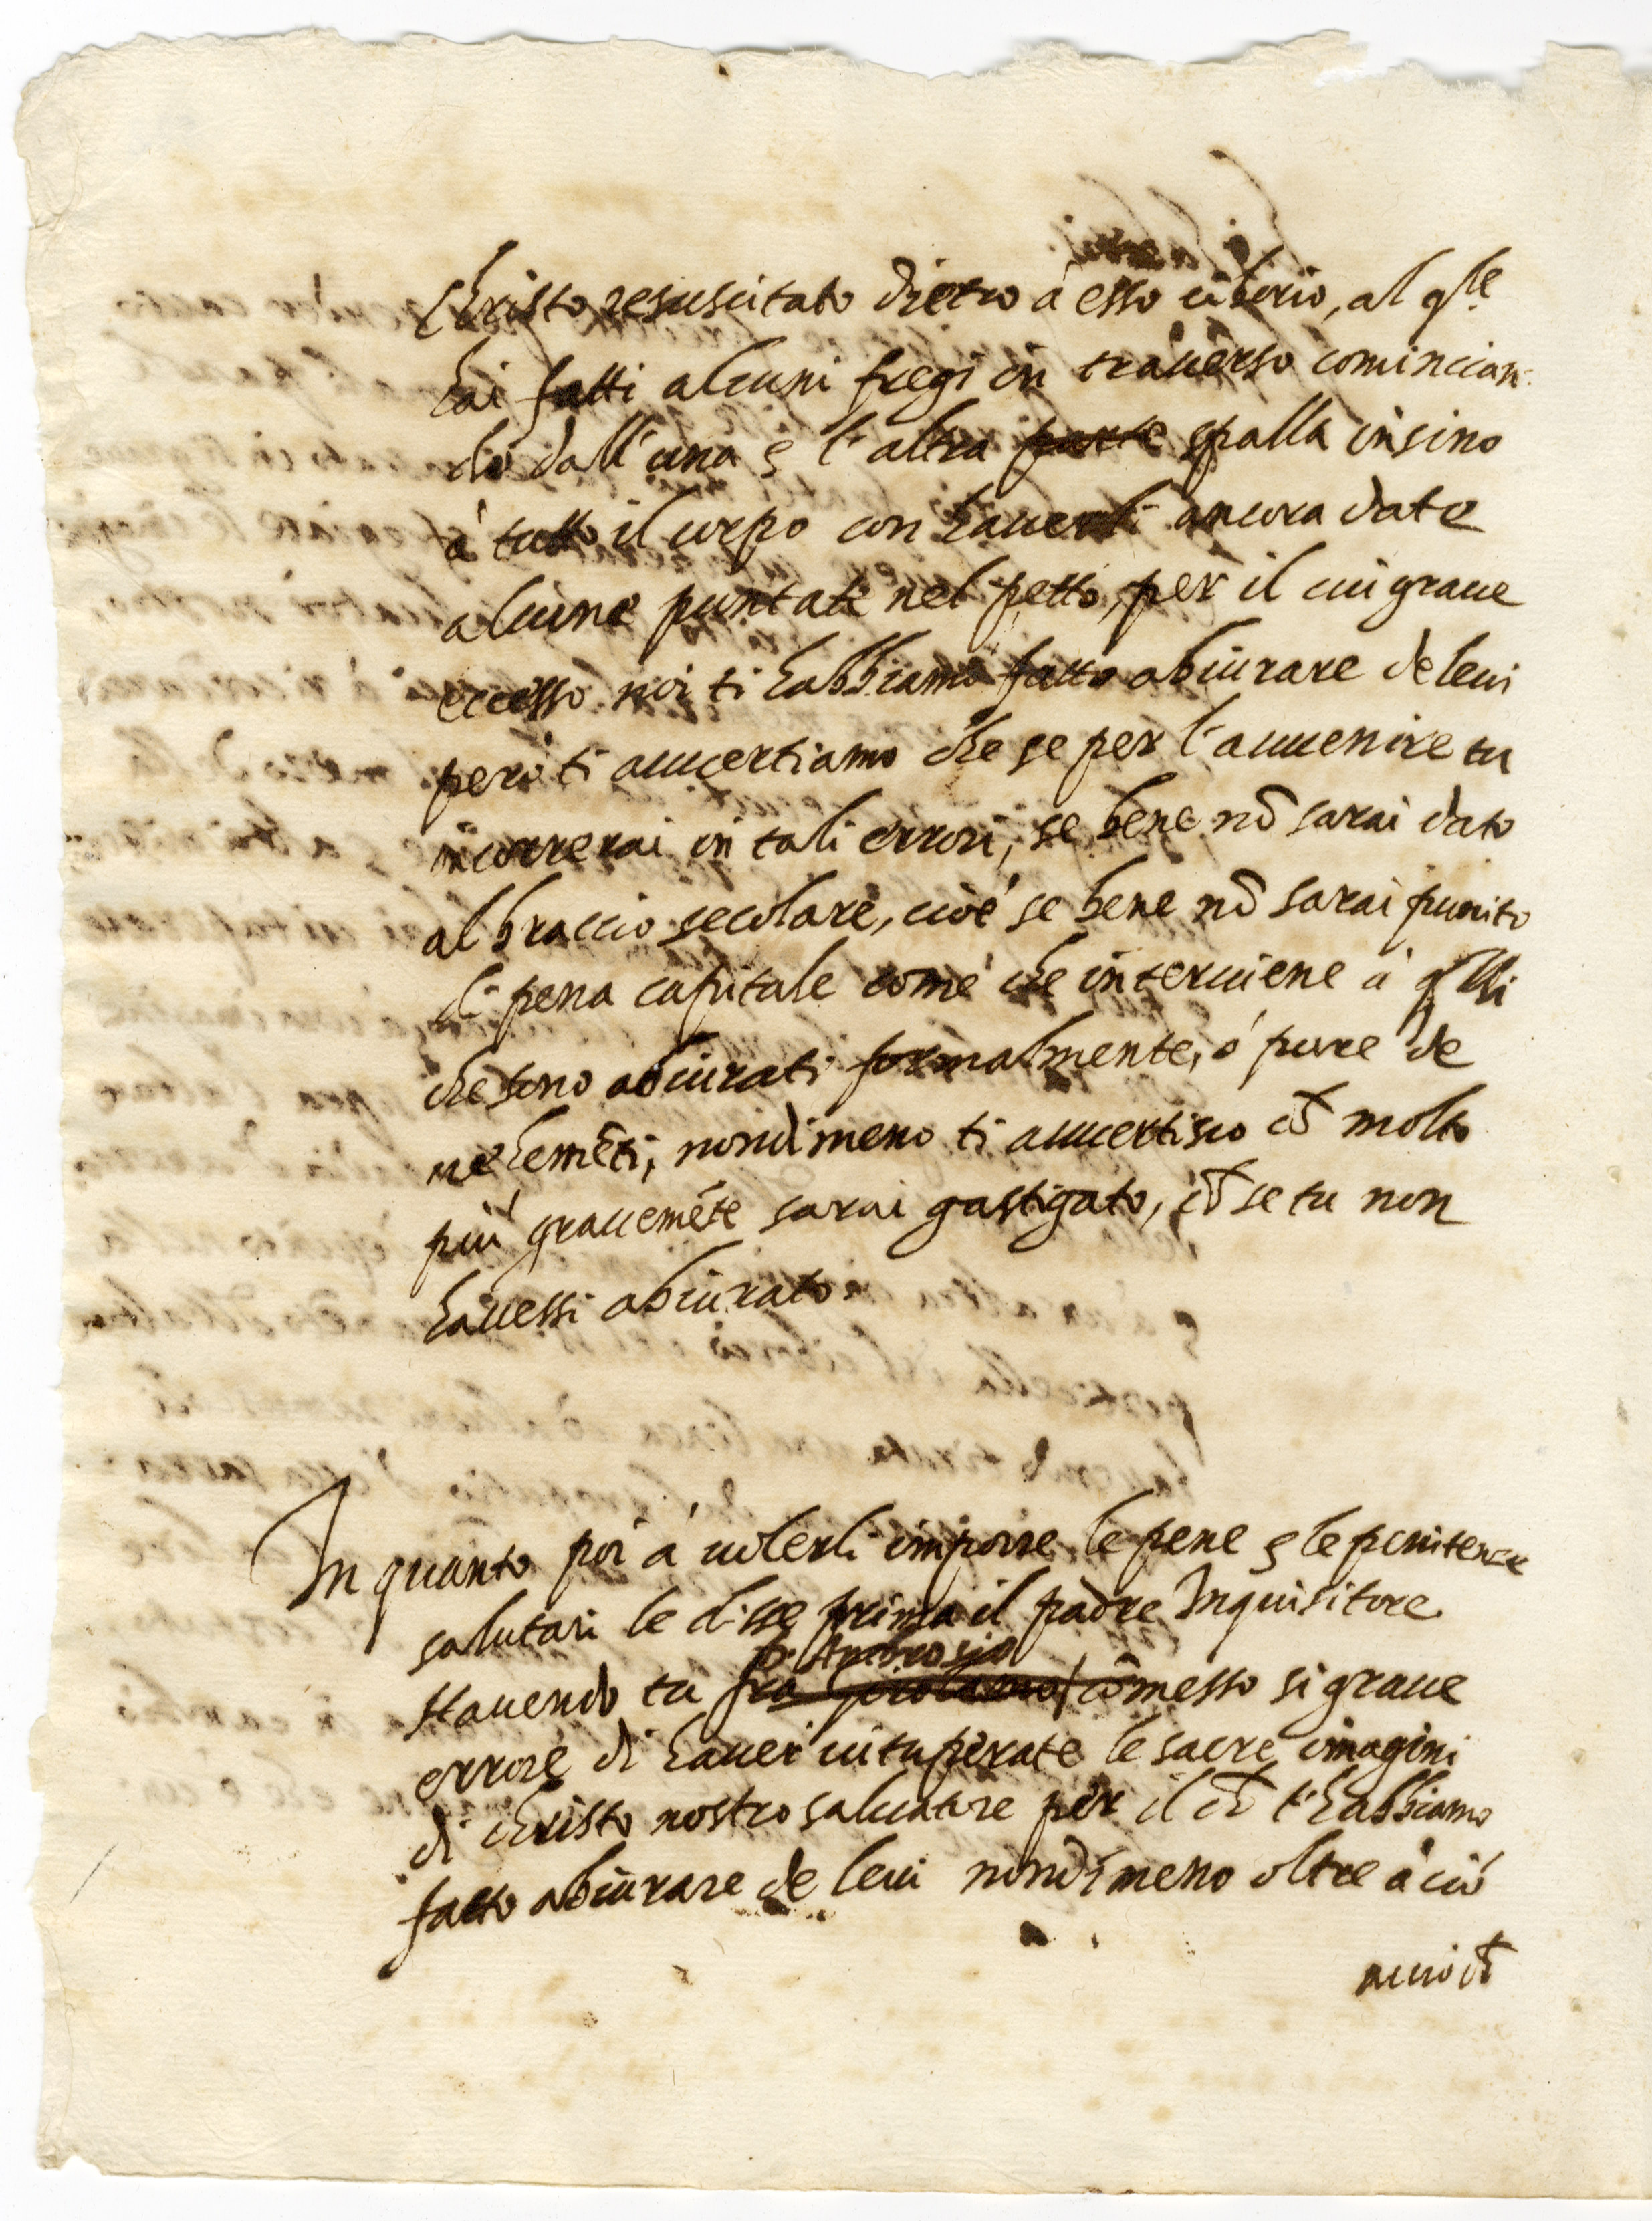 Christo resuscitato dietro à esso ciborio, al qle
hai fatti alcuni fregi in trauerso comincian-
do dall'una e l'altra parte spalla insino
à tutto il corpo con hauerli ancora date
alcune puntate nel petto, per il cui graue
eccesso noi ti habbiamo fatto abiurare de leui
però ti auuertiamo che se per l'auuenire tu
incorrerai in tali errori, se bene nō sarai dato
al braccio secolare, cioè se bene nō sarai punito
di pena capitale come che interuiene à qlli
che sono abiurati formalmente, ó pure de
uehemēti, nondimeno ti auuertisco ch̄ molto
più grauemēte sarai gastigato, ch̄ se tu non
hauessi abiurato.
In quanto poi à uolerli imporre le pene e le penitenze
salutari le disse prima il padre Inquisitore
f. Ambrosio
Hauendo tu fra Girolamo cōmesso si graue
errore di hauer uituperate le sacre imagini
di Christo nostro saluatore per il ch̄ t'habbiamo
fatto abiurare de leui nondimeno oltre à ciò
acciò ch̄